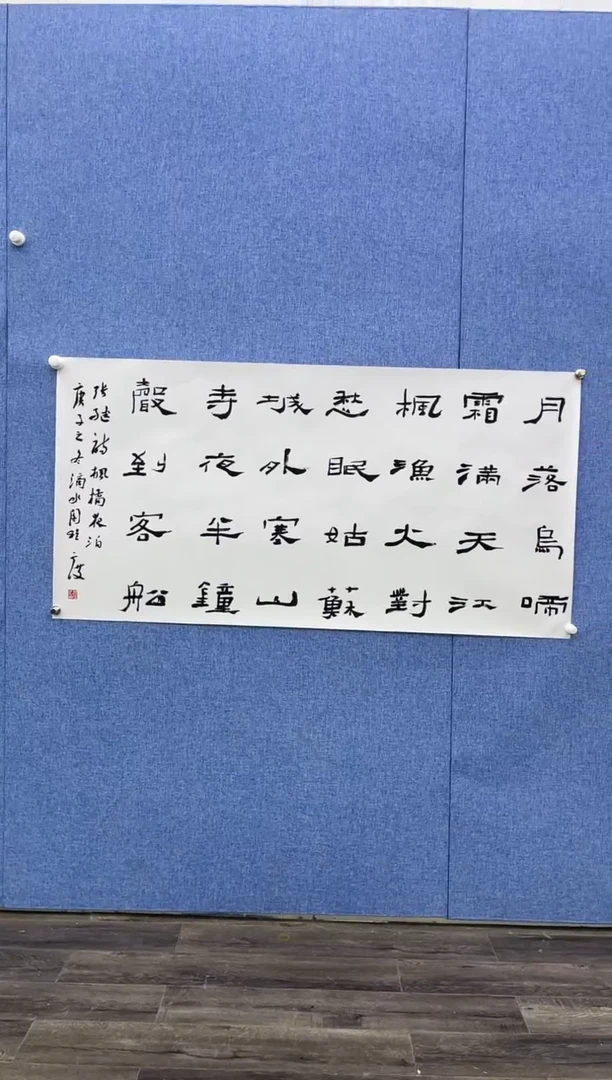 月落烏啼
霜满天江
楓漁火對
愁眠姑蘇
城外寒山
寺夜半鐘
聲到客船
张继诗枫橋夜泊
庚子之冬滴水周